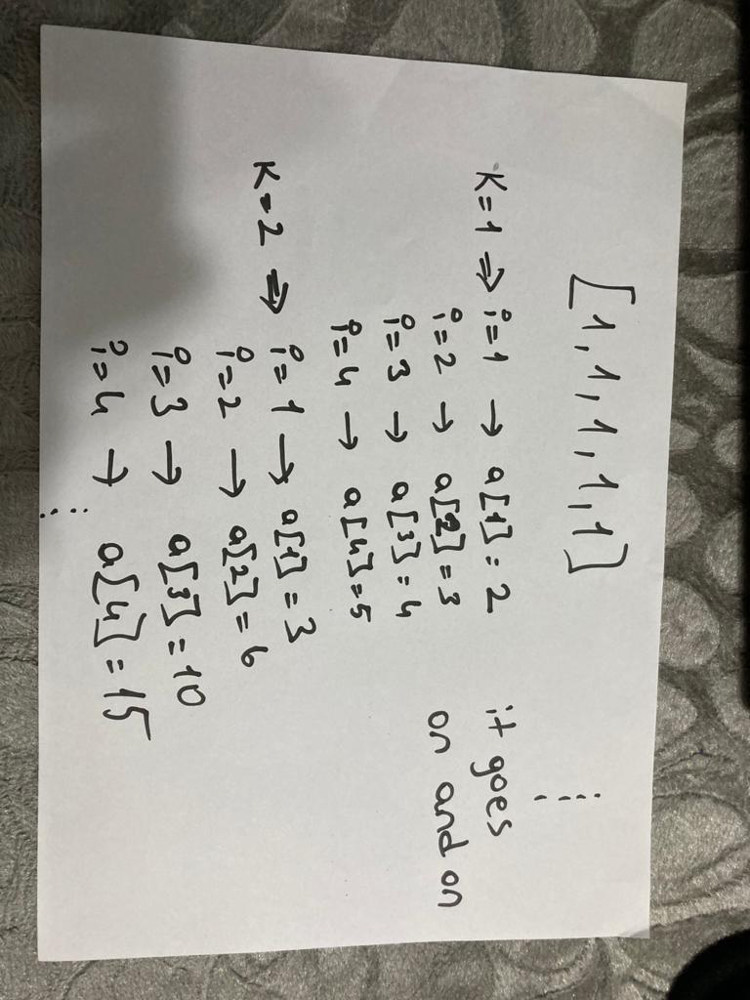 [1, 1, 1, 1, 1]
K=1 ⇒ i=1 → a[1] = 2
i=2 → a[2] = 3
i=3 → a[3] = 4
i=4 → a[4] = 5
K=2 ⇒ i=1 → a[1] = 3
i=2 → a[2] = 6
i=3 → a[3] = 10
i=4 → a[4] = 15
⋮
...
it goes
on and on